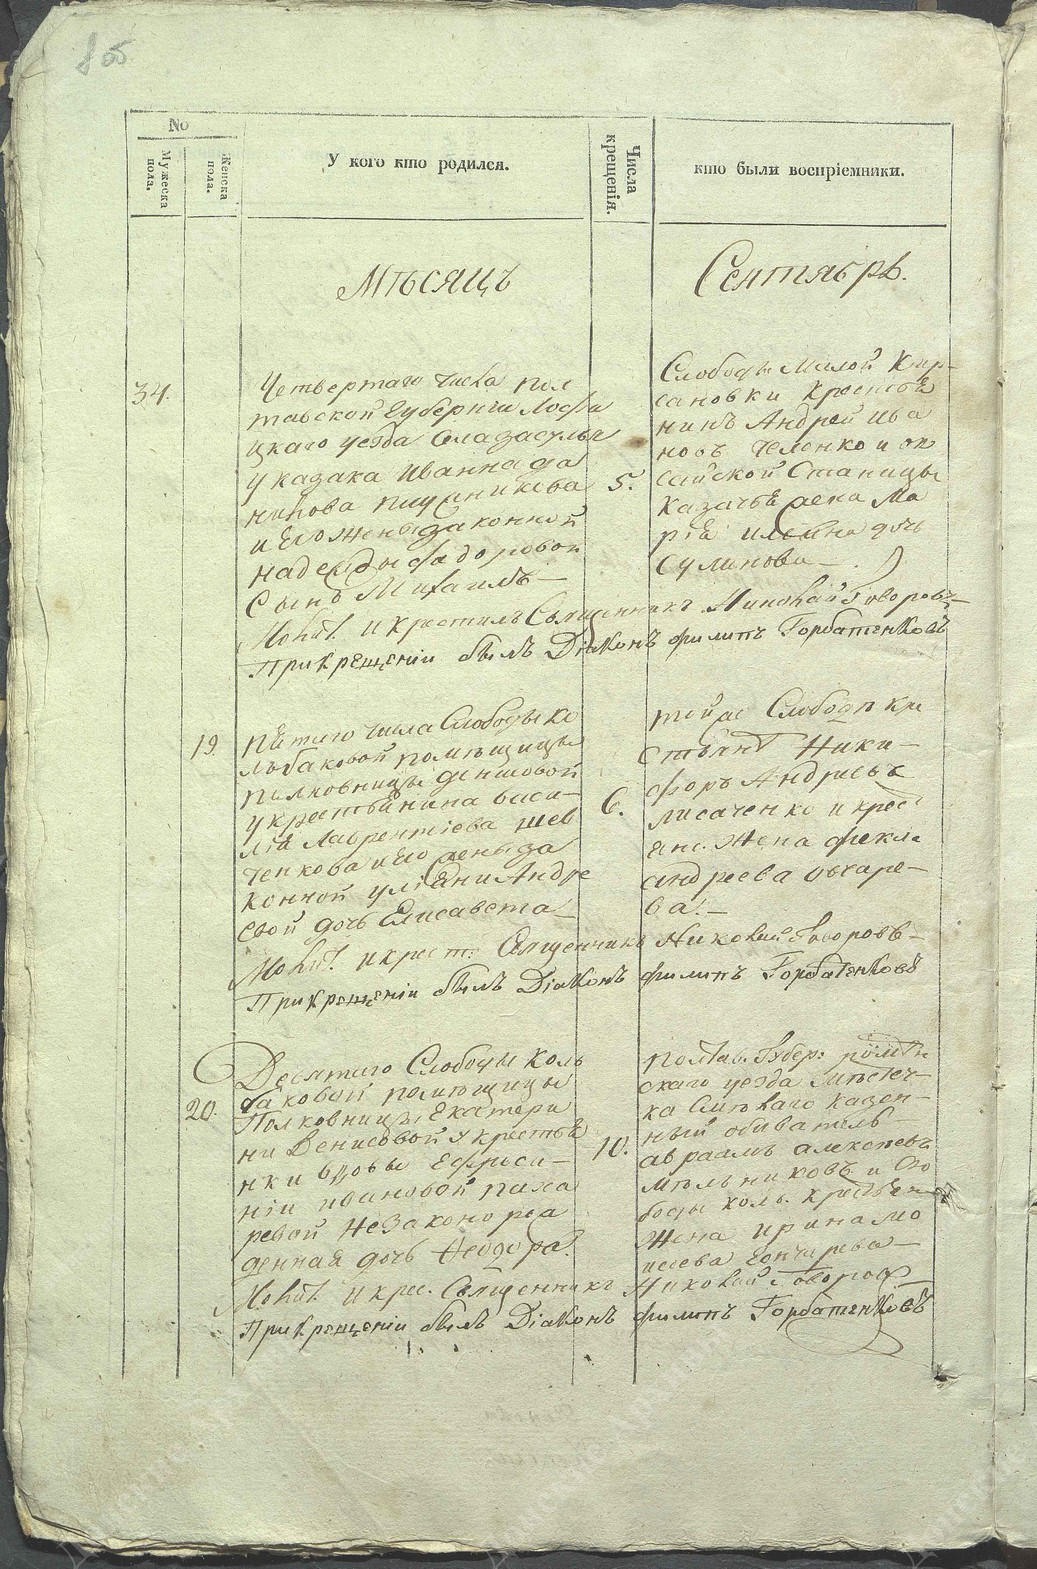 No
Мужеска пола.
Женска пола.
У кого кто родился.
Числа крещенія.
кто были воспріемники.
Мѣсяцъ
Сентябрь.
34.
Четвертаго числа пол
тавской Губерніи Лохви
цкаго уезда села
у казака Ивана да
нилова
и Его жены законной
надежды фадоровой
Сынъ Михаилъ —
5.
Слободы Малой Кир-
сановки крестья
нинъ Андрей Ива
новъ Чепенко и ак
сайской Станицы
казачья жена Ма
рія дочь
Сулинова —
Молит. и крестилъ Священникъ Николай Говоровъ —
При крещеніи былъ Діаконъ филипъ Горбатенковъ
19
пятаго числа Слободы ко
льбаковой помѣщицы
полковницы денисовой
у крестьянина васи-
лія Лаврентіева шев
ченкова и Его жены за
конной уліяни Андре
евой дочь Елисавета —
6.
той же Слободы кре
стьянъ Ники-
форъ Андреевъ
лисаченко и крес
янс. жена фекла
андреева овчаре-
ва. —
Молит. и крест. Священникъ Николай Говоровъ —
При крещеніи былъ Діаконъ филипъ Горбатенковъ
20.
Десятаго Слободы коль
баковой помѣщицы
Полковницы Екатери
ни Денисовой у крестья
нки вдовы Ефроси-
ніи ивановой пиха
ревой незаконорож
денная дочь Феодора.
10.
полтав. Губер: ромен
скаго уезда мѣстеч-
ка Смѣлаго казен-
ный обыватель
авраамъ алексѣевъ
мѣльниковъ и Сло
боды коль. крестьян
жена ирина мо
исеева Гончарева —
Молит. и крес. Священникъ Николай Говоровъ
При крещеніи былъ Діаконъ филипъ Горбатенковъ